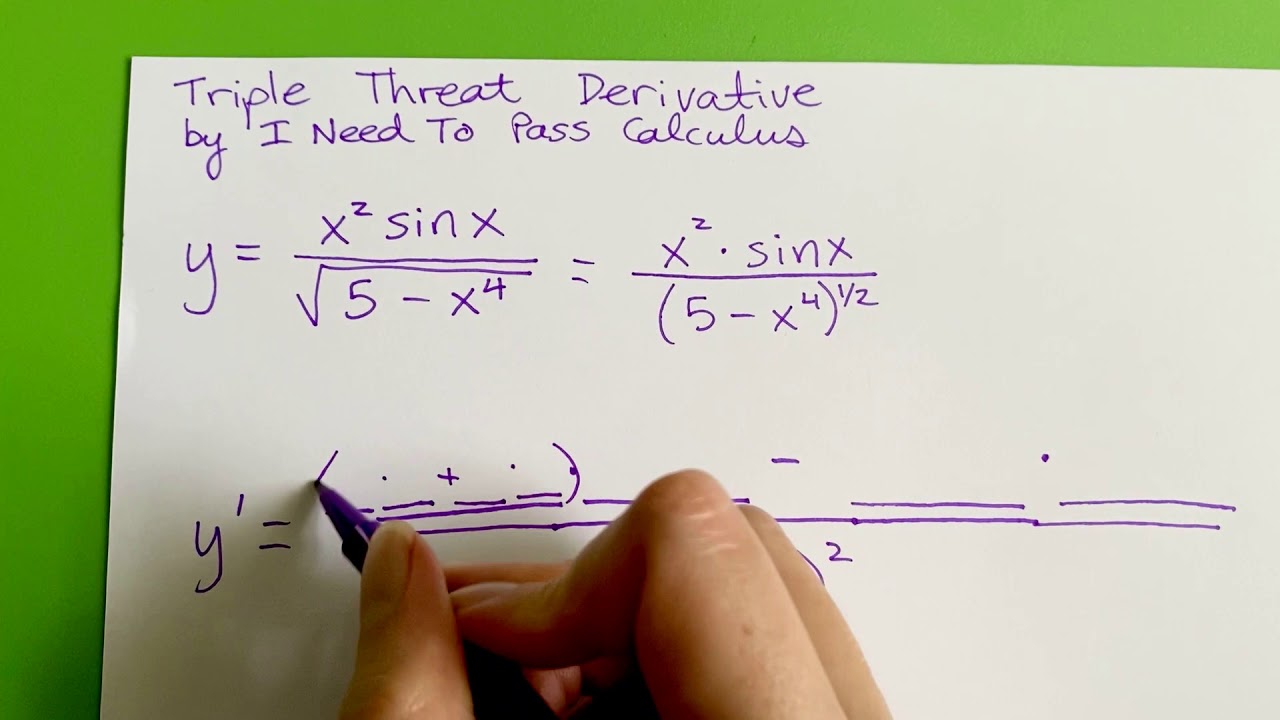 Triple Threat Derivative
by I Need To Pass Calculus
y = x² sin x / √(5 − x⁴) = x² · sin x / (5 − x⁴)^1/2
y' = ( _ · _ + _ · _ ) · _ − _ · _ / ( )²